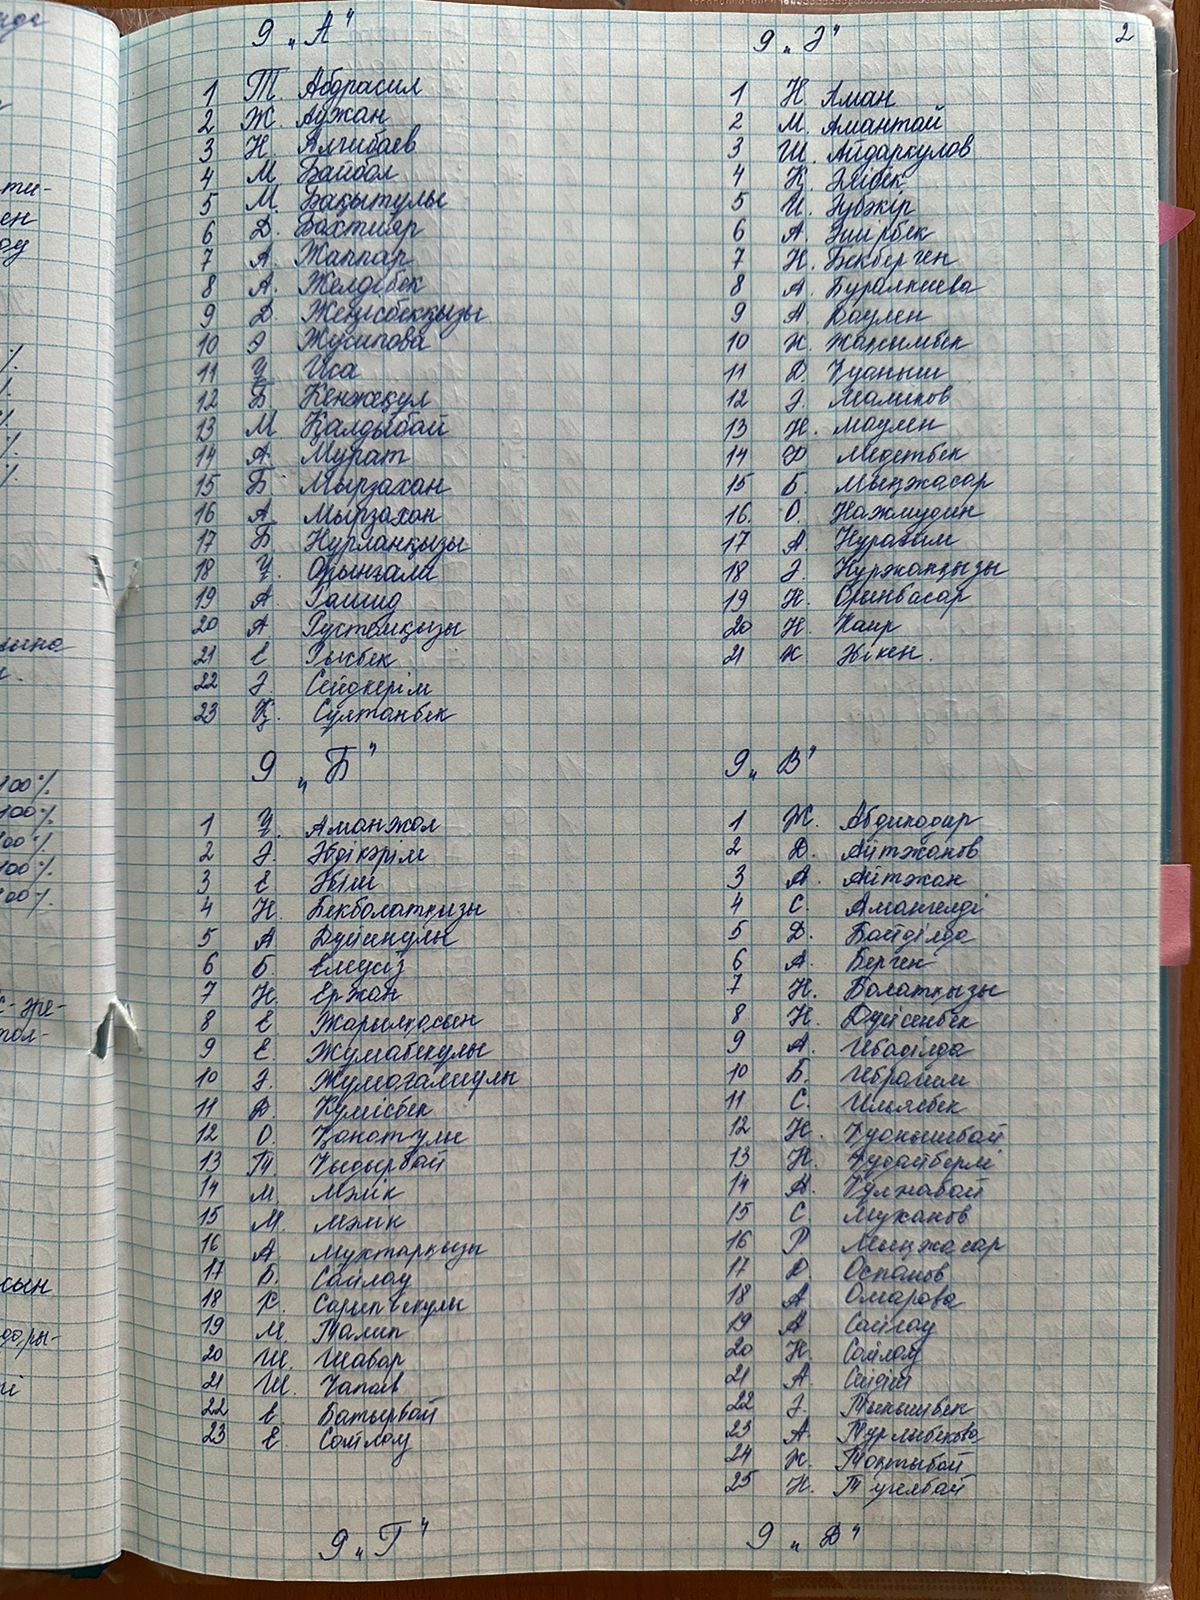 2
9 „А"
1 Т. Абдрасил
2 Ж. Аужан
3 Н Алчибаев
4 М Байбол
5 М. Бақытулы
6 Д. Бахтияр
7 А. Жаппар
8 А. Желдібек
9 Д. Жеңісбекқызы
10 Э Жусипова
11 Ұ Иса
12 Б Кенжеқул
13 М Қалдыбай
14 А Мурат
15 Б Мырзахан
16 А Мырзахан
17 Б Нурланқызы
18 Ұ. Орынғали
19 А. Рашид
20 А Рустемқызы
21 Е Рысбек
22 Ә Сейдкерім
23 Қ. Султанбек
9 „Ә"
1 Н Аман
2 М. Амантай
3 Ш. Айдаркулов
4 Қ. Әлібек
5 И. Әубәкір
6 А. Әшірбек
7 Н. Бекберген
8 А. Буралкиева
9 А Даулен
10 Ж. Жарымбек
11 Д. Қуаныш
12 Ә Маликов
13 Н. Маулен
14 Ф Медетбек
15 Б. Мыңжасар
16. О. Нажмудин
17 А.
18 Ә. Нуржанқызы
19 Н. Орынбасар
20 Н. Каир
21 К
9 „Б"
1 Ұ. Аманжол
2 Ә. Әбдікәрім
3 Е Әбіш
4 Н. Бекболатқызы
5 А
6 Б. Елеусіз
7 Н. Ержан
8 Е Жарылқасын
9 Е. Жумабекулы
10 Ә. Жумағалиулы
11 Д Кумісбек
12 О. Қанатулы
13 Т Қыдырбай
14 М. Мәлік
15 М. Мәлік
16 А. Мухтарқызы
17 Б. Сайлау
18 К. Сарыпбекулы
19 М. Талип
20 Ш. Шавар
21 Ш. Чапаев
22 Е. Батырбай
23 Е Сайлау
9 „В"
1 Ж. Абдиходар
2 Д. Айтжанов
3 А. Айтжан
4 С. Амангелді
5 Д. Байділда
6 А. Берген
7 Н. Болатқызы
8 Н. Дуйсенбек
9 А. Ибаділда
10 Б. Ибрагим
11 С. Ильясбек
12 Н. Қуанышбай
13 Н. Құдайберлі
14 А. Құлнабай
15 С Муханов
16 Р Мыңжасар
17 Д Оспанов
18 А Омарова
19 А Сайлау
20 Н. Сайлау
21 А.
22 Ә. Тынышбек
23 А Турлыбекова
24 Ж. Тоқтыбай
25 Н.
9 „Г"
9 „Д"